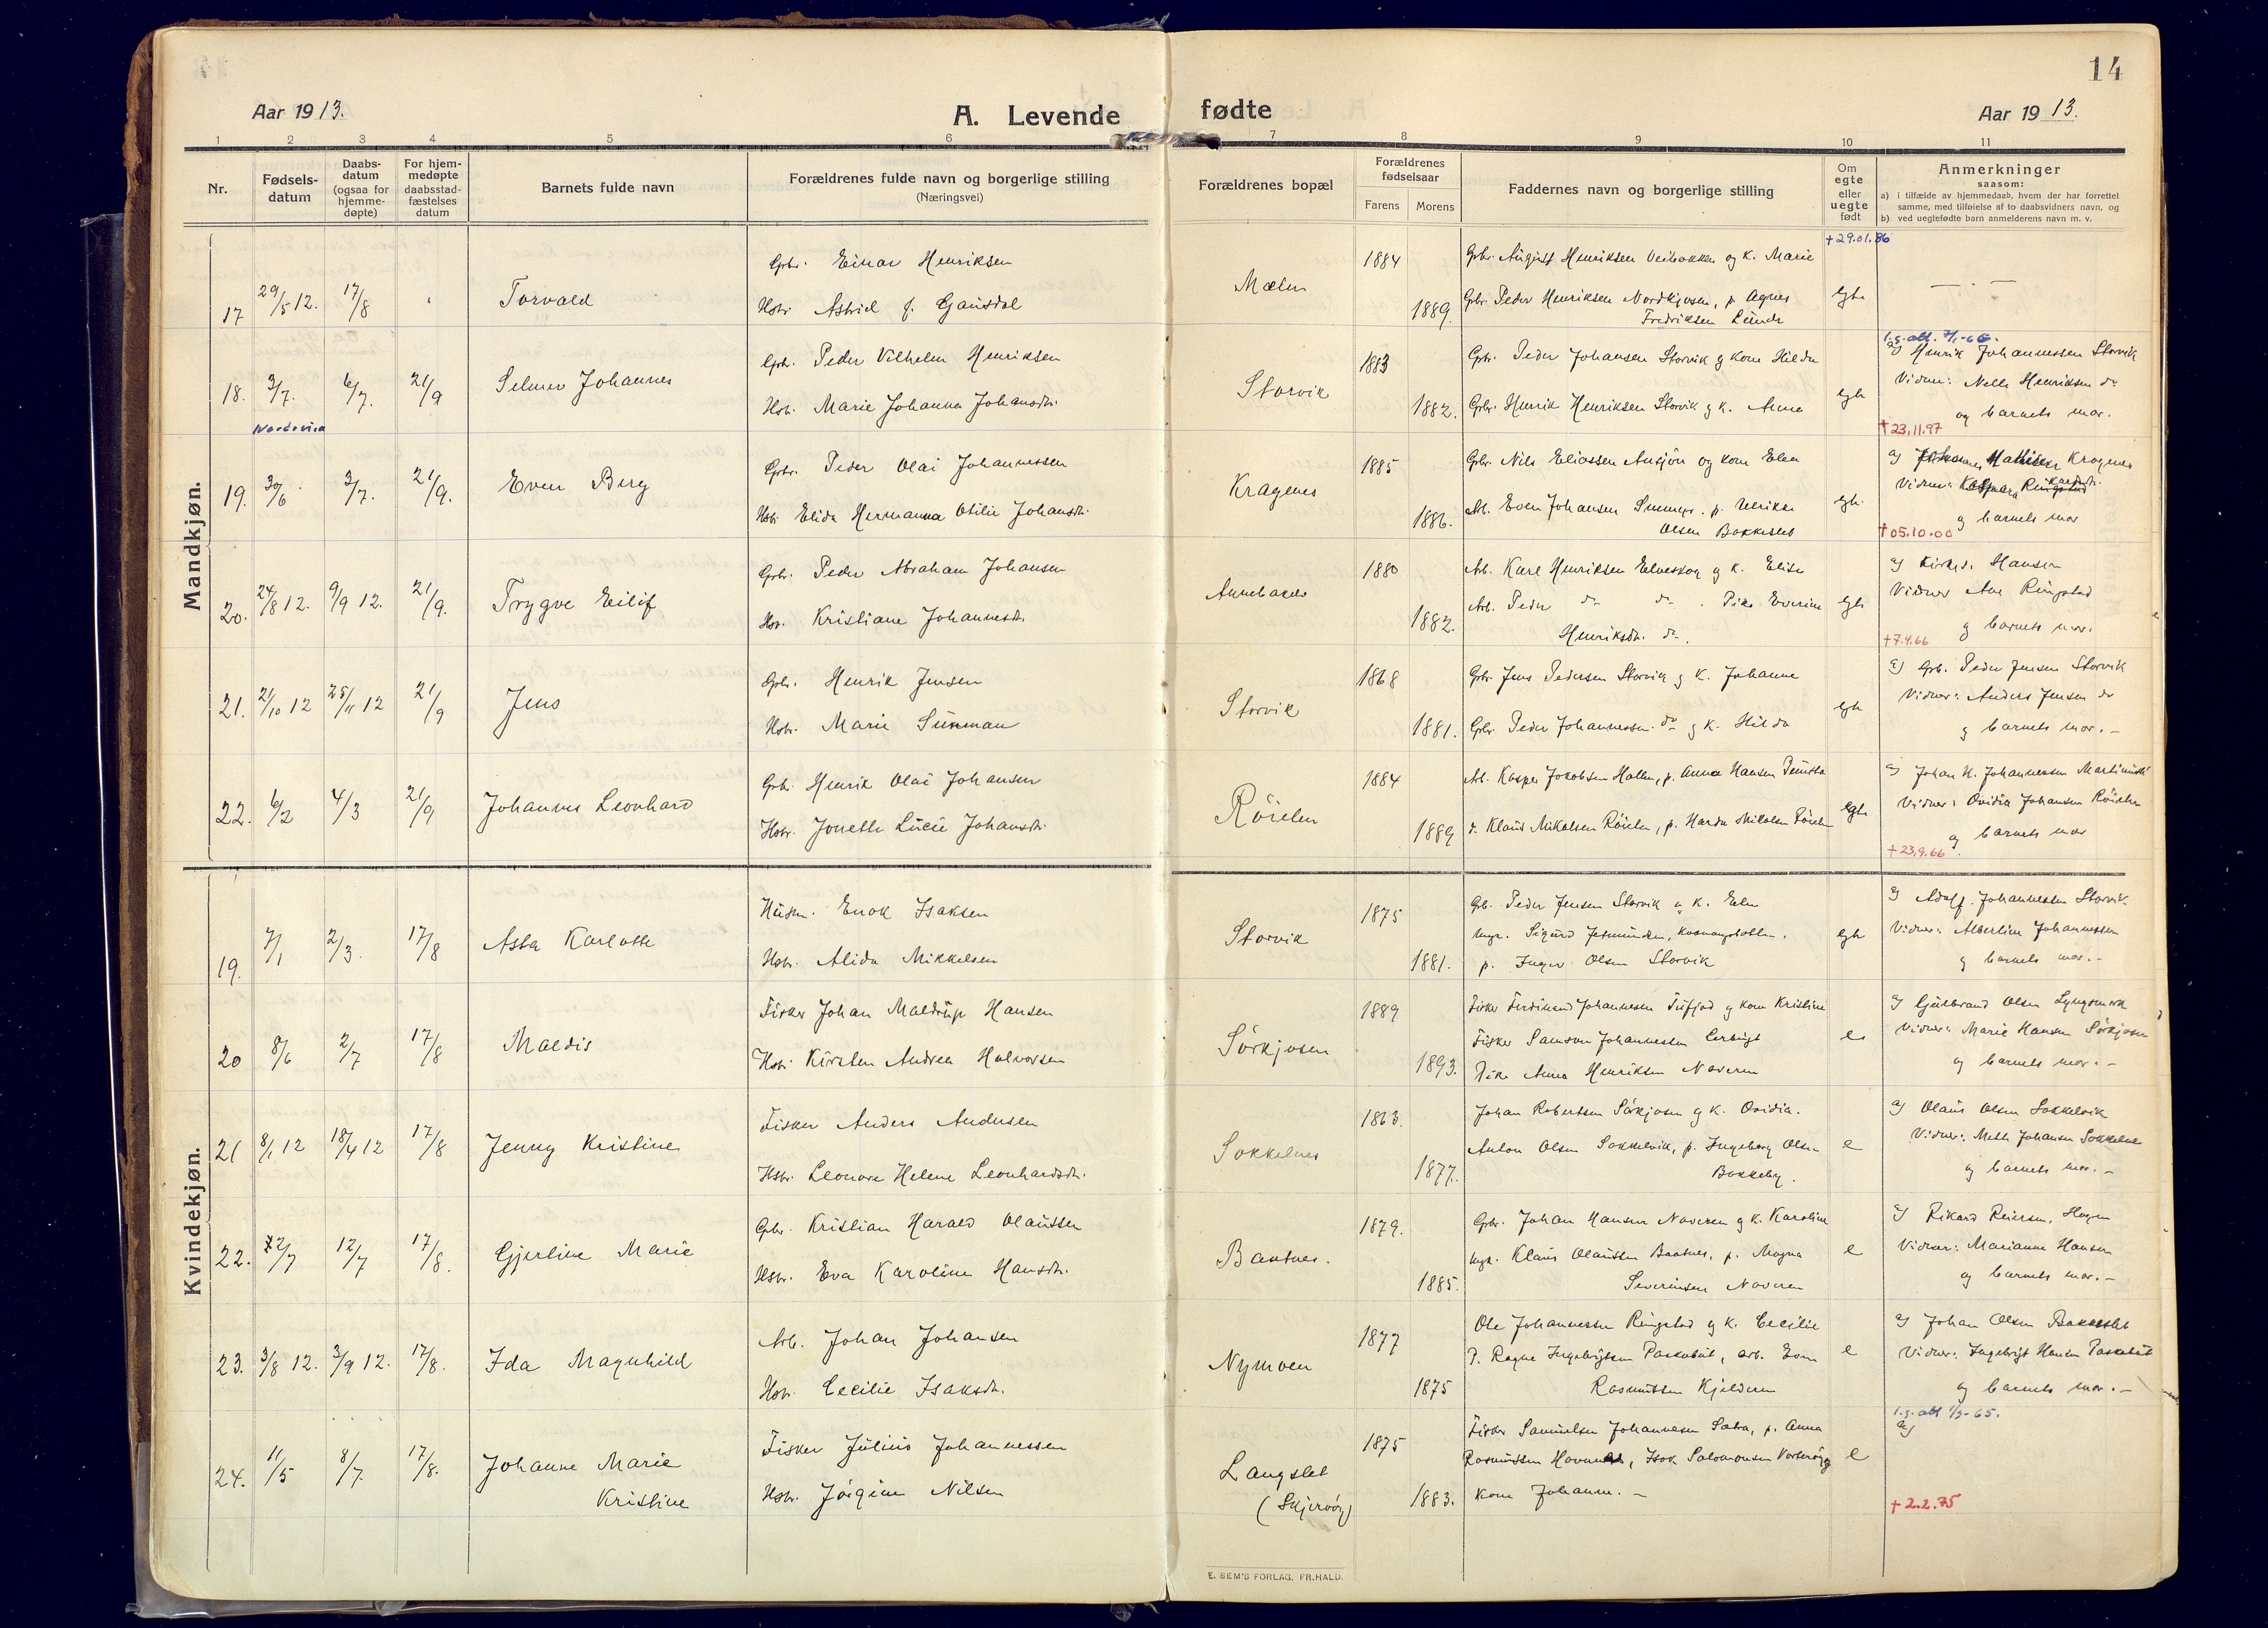 14
Aar 1913.
A. Levende fødte
Aar 1913.
1 2 3 4 5 6 7 8 9 10 11
Nr.
Fødsels-
datum
Daabs-
datum
(ogsaa for
hjemme-
døpte)
For hjem-
medøpte
daabsstad-
fæstelses
datum
Barnets fulde navn
Forældrenes fulde navn og borgerlige stilling
(Næringsvei)
Forældrenes bopæl
Forældrenes
fødselsaar
Farens Morens
Faddernes navn og borgerlige stilling
Om
egte
eller
uegte
født
Anmerkninger
saasom:
a) i tilfælde av hjemmedaab, hvem der har forrettet
samme, med tilføielse af to daabsvidners navn, og
b) ved uegtefødte barn anmelderens navn m. v.
Mandkjøn.
17 29/5 12. 17/8 Torvald
Gbr. Einar Henriksen
Hstr. Astrid J. Gausdal
Mælen 1884 1889.
Gbr. August Henriksen og K. Marie
Gbr. Peder Henriksen Nordkjosen, p. Agnes
Fredriksen Lunde
egte
+29.01.86
18. 3/7. 6/7. 21/9 Selmer Johannes
Gbr. Peder Vilhelm Henriksen
Hstr. Marie Johanna Johansdtr.
Storvik 1883 1882.
Gbr. Peder Johansen Storvik og kone Hilda
Gbr. Henrik Henriksen Storvik og K. Anna
egte
l.g. att. 7/1-66.
a) Henrik Johannessen Storvik
Vidner: Nelle Henriksen do
og barnets mor.
+23.11.97
19. 30/6 3/7. 21/9. Even Berg
Gbr. Peder Olai Johannessen
Hstr. Elida Hermanna Otilie Johansdtr.
Kragenes 1885 1886.
Gbr. Nils Eliassen og kone Elen
Arb. Even Johansen p. Ulrikke
Olsen Bakkeslet
egte
a) Mathisen Kragenes
Vidner:
og barnets mor
+05.10.00
20. 24/8 12. 9/9 12. 21/9. Trygve Eilif
Gbr. Peder Abraham Johansen
Hstr. Kristiane Johannesdtr.
Annebakke 1880 1882.
Arb. Karl Henriksen Elveskog og K. Elise
Arb. Peder do do. Pike Everine
Henriksdtr. do.
egte
a) Kirkes. Hansen
Vidner Ane Ringstad
og barnets mor.
+7.4.66
21. 21/10 12 25/11 12 21/9 Jens
Gbr. Henrik Jensen
Hstr. Marie Sunman
Storvik 1868 1881.
Gbr. Jens Pedersen Storvik og K. Johanne
Gbr. Peder Johannessen do og K. Hilda
egte
a) Gbr. Peder Jensen Storvik
Vidner: Anders Jensen do
og barnets mor. –
22. 6/2 4/3 21/9 Johannes Leonhard
Gbr. Henrik Olai Johansen
Hstr. Jonette Lucie Johansdtr.
Röielen 1884 1889
Arb. Kasper Jakobsen Hallen, p. Anna Hansen
Klaus Mikalsen Röielen, p. Harda Mikalsen Röielen
egte
a) Johan H. Johannessen
Vidner: Ovidia Johansen Röielen
og barnets mor
+23.9.66
Kvindekjøn.
19. 7/1 2/3. 17/8 Asta Karlotte
Husm. Enok Isaksen
Hstr. Alida Mikkelsen
Storvik 1875 1881.
Gb. Peder Jensen Storvik og K. Elen
Ungk. Sigurd
p. Inger Olsen Storvik
egte
a) Adolf Johannessen Storvik.
Vidner: Albertine Johannessen
og barnets mor. –
20 8/6 2/7 17/8 Maldis
Fisker Johan Maldrup Hansen
Hstr. Kirsten Andrea Halvorsen
Sörkjosen 1889 1893.
Fisker Ferdinand Johannesen og kone Kristine
Fisker Samson Johannesen
Pike Anna Henriksen Naveren
e
a) Gulbrand Olsen
Vidner: Marie Hansen Sörkjosen
og barnets mor. –
21 8/1 12 18/4 12 17/8 Jenny Kristine
Fisker Anders Andersen
Hstr. Leonore Helene Leonhardsdtr.
Sokkelnes 1863. 1877.
Johan Robertsen Sörkjosen og K. Ovidia.
Anton Olsen Sokkelvik, p. Ingeborg Olsen
Bakkeby.
e
a) Olaus Olsen Sokkelvik
Vidner: Mette Johansen Sokkelnes
og barnets mor. –
22. 12/7 12/7 17/8. Gjertine Marie
Gbr. Kristian Harald Olaussen
Hstr. Eva Karoline Hansdtr.
Baatnes. 1879. 1885.
Gbr. Johan Hansen Naveren og K. Karoline
Ungk. Klaus Olaussen Baatnes, p. Magna
Severinsen Naveren
e
a) Rikard Reiersen, Hagen
Vidner: Marianne Hansen
og barnets mor. –
23. 3/8 12. 3/9 12. 17/8. Ida Magnhild
Arb. Johan Johansen
Hstr. Cecilie Isaksdtr.
Nymoen 1877 1875
Ole Johannessen Ringstad og K. Cecilie
P. Ragna Ingebrigtsen, arb. Even
Rasmussen Kjelderen
e
a) Johan Olsen Bakkeslet
Vidner: Ingebrigt Hansen
og barnets mor. –
24. 11/5 8/7 17/8. Johanne Marie
Kristine
Fisker Julius Johannessen
Hstr. Jörgine Nilsen
Langslet
(Skjervöy)
1875 1883.
Fisker Samuelsen Johannesen, p. Anna
Rasmussen, Isak Salomonsen Vorteröy og
kone Johanne. –
e
l.g. att 1/3-65.
a)
+2.2.75
E. SEM'S FORLAG. FR.HALD.